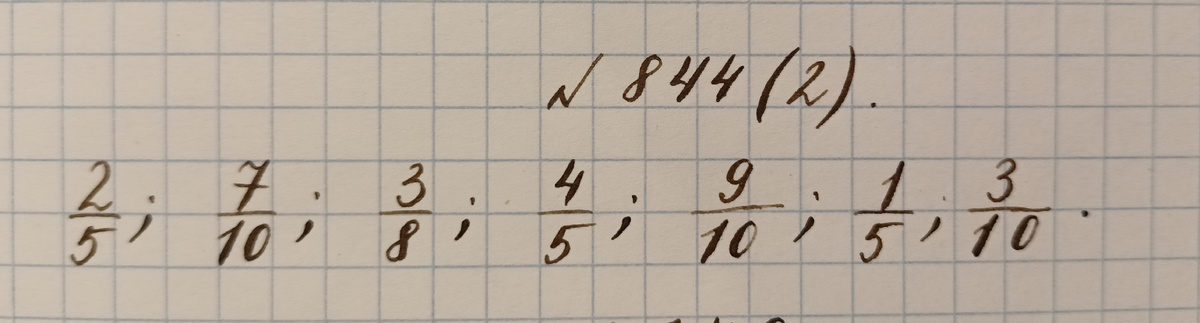 № 844 (2).
2/5; 7/10; 3/8; 4/5; 9/10; 1/5; 3/10.